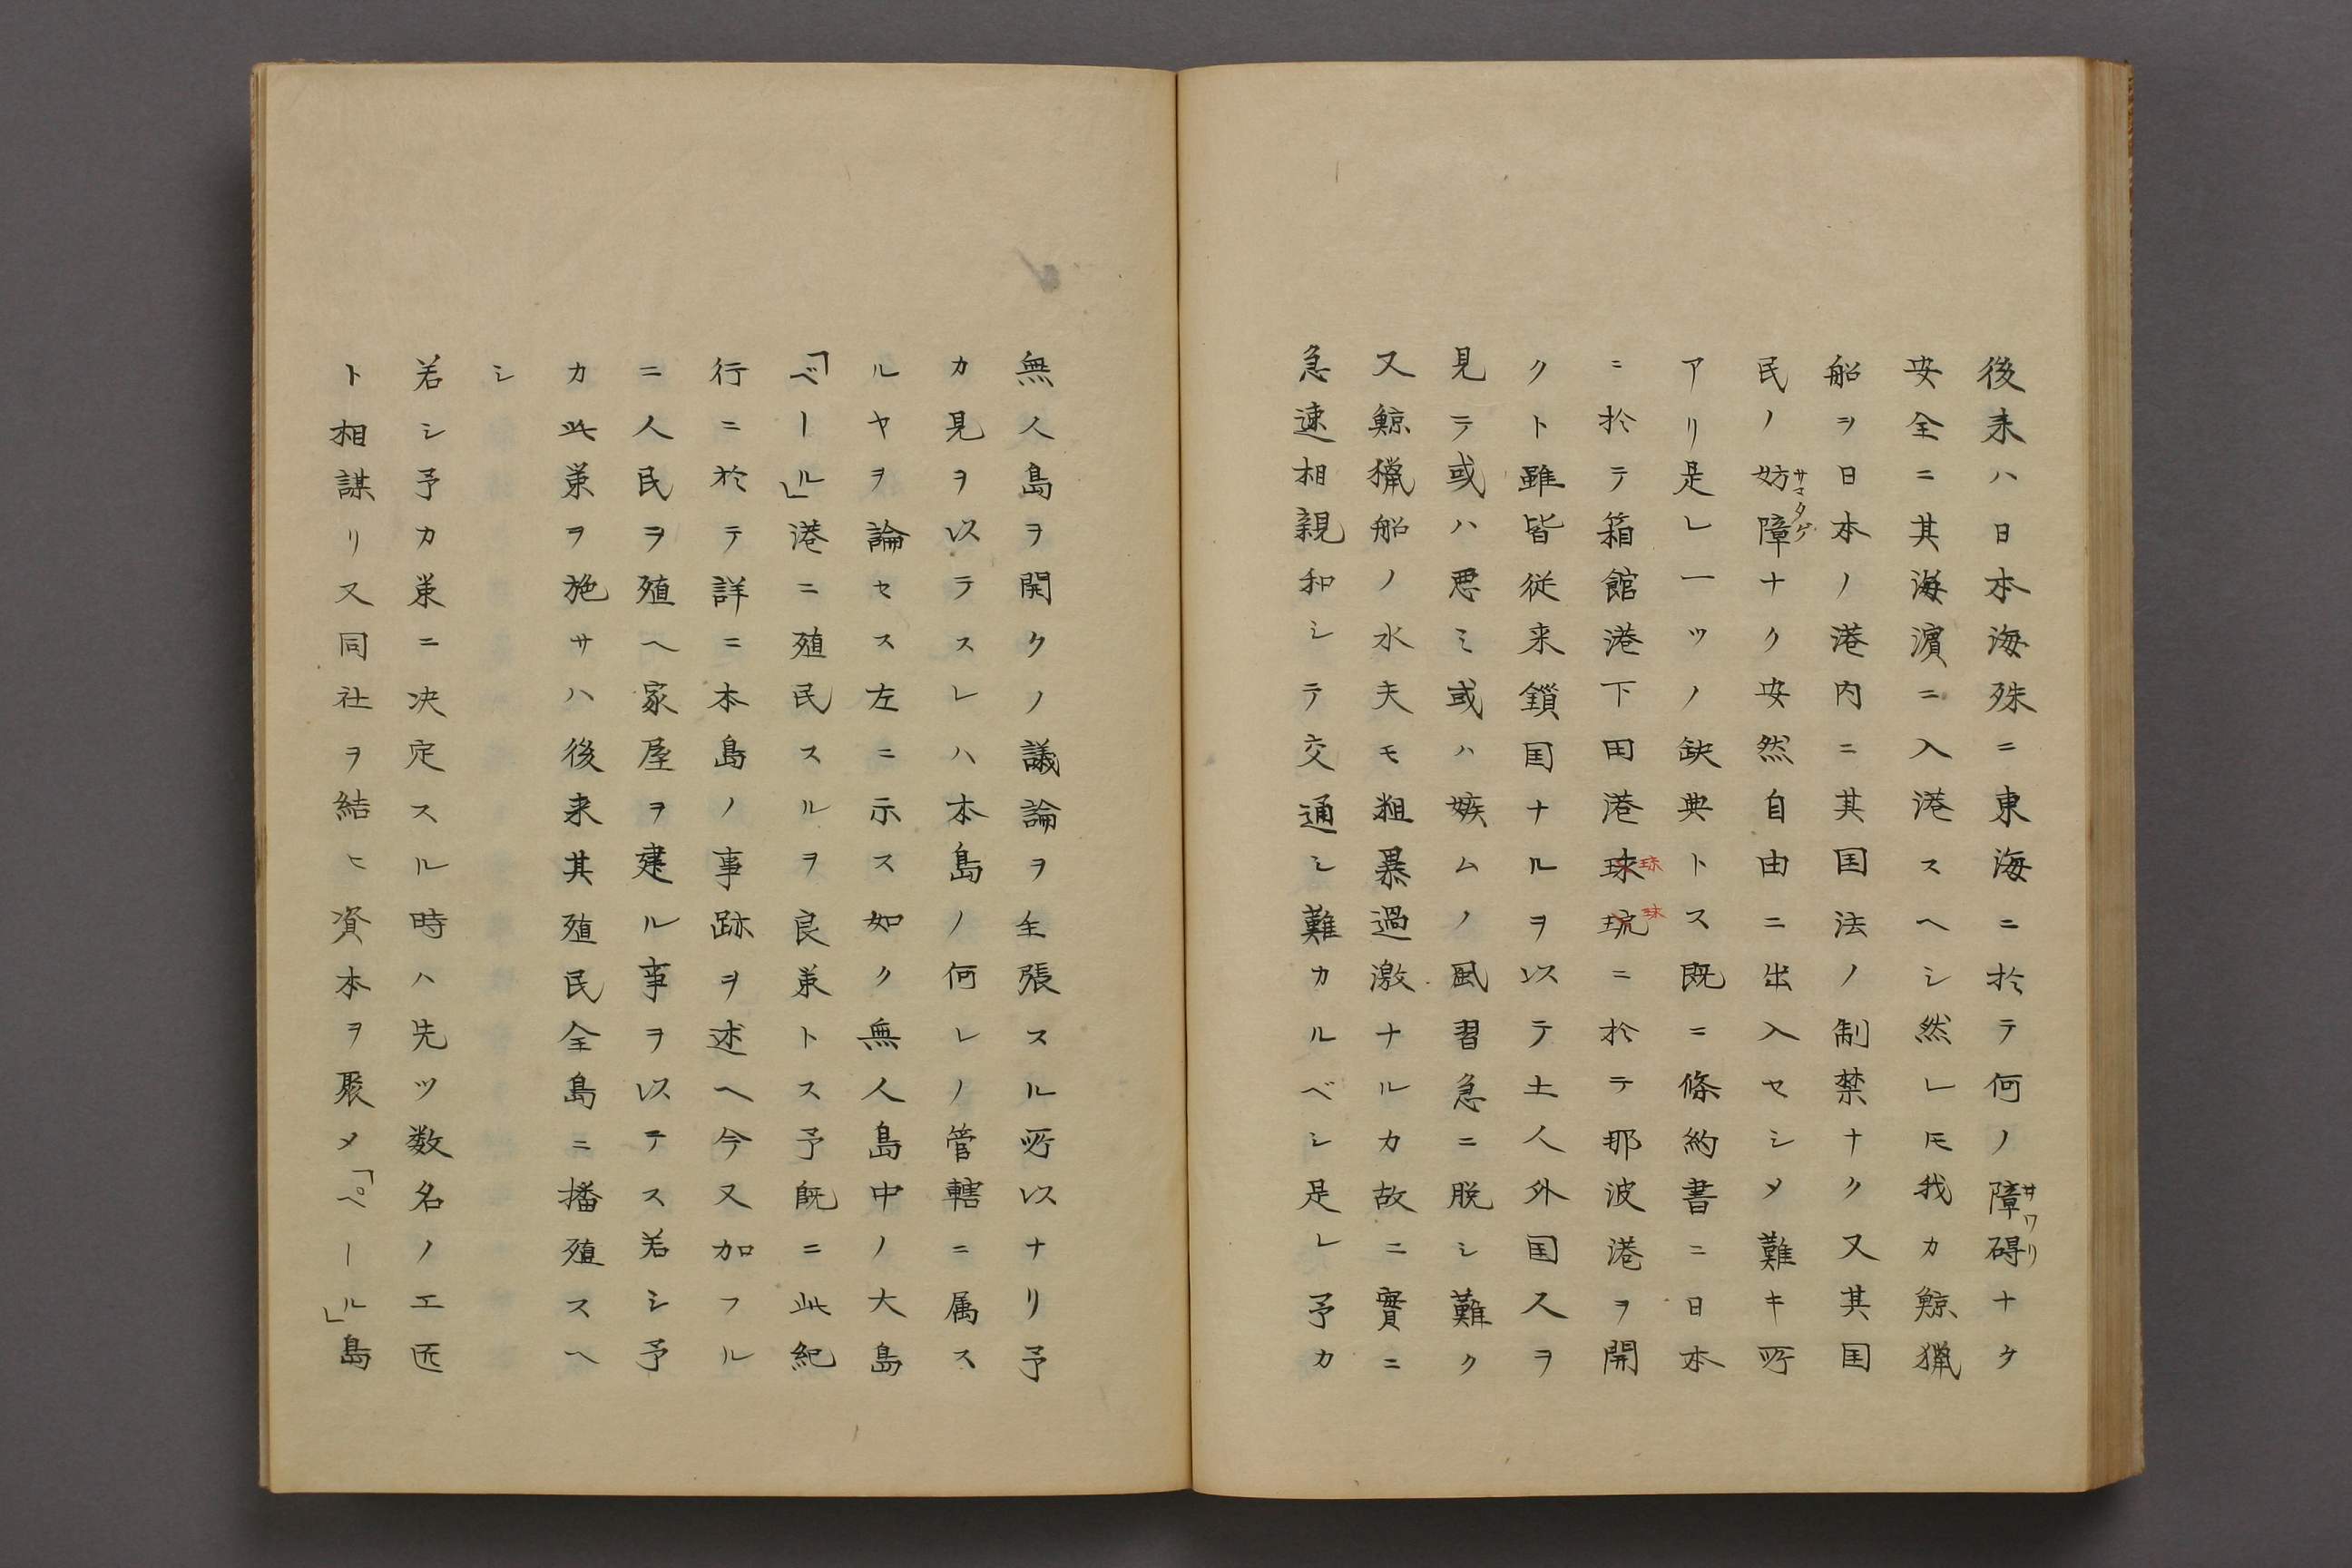 後来ハ日本海殊ニ東海ニ於テ何ノ障碍ナク
サワリ
安全ニ其海濱ニ入港スヘシ然レ𪜈我カ鯨猟
船ヲ日本ノ港内ニ其国法ノ制禁ナク又其国
民ノ妨障ナク安然自由ニ出入セシメ難キ所
サマタゲ
アリ是レ一ツノ缺典トス既ニ條約書ニ日本
ニ於テ箱館港下田港球琉ニ於テ那波港ヲ開
クト雖皆従来鎖国ナルヲ以テ土人外国人ヲ
見テ或ハ悪ミ或ハ嫉ムノ風習急ニ脱シ難ク
又鯨猟船ノ水夫モ粗暴過激ナルカ故ニ實ニ
急速相親和シテ交通シ難カルベシ是レ予カ
無人島ヲ開クノ議論ヲ主張スル所以ナリ予
カ見ヲ以テスレハ本島ノ何レノ管轄ニ属ス
ルヤヲ論セス左ニ示ス如ク無人島中ノ大島
「ベール」港ニ殖民スルヲ良策トス予既ニ此紀
行ニ於テ詳ニ本島ノ事跡ヲ述ヘ今又加フル
ニ人民ヲ殖ヘ家屋ヲ建ル事ヲ以テス若シ予
カ此策ヲ施サハ後来其殖民全島ニ播殖スヘ
シ
若シ予カ策ニ决定スル時ハ先ツ数名ノ工匠
ト相謀リ又同社ヲ結ヒ資本ヲ聚メ「ペール」島